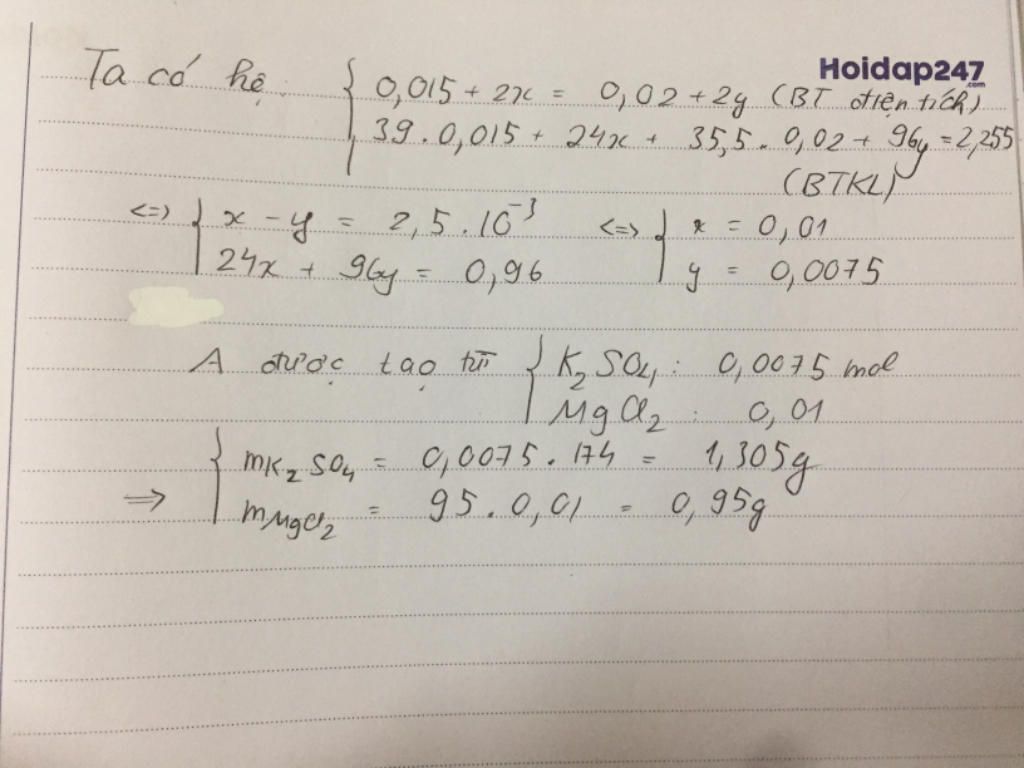 Hoidap247
.com
Ta có hệ: { 0,015 + 2x = 0,02 + 2y (BT điện tích)
39 . 0,015 + 24x + 35,5 . 0,02 + 96y = 2,255
(BTKL)
<=> { x - y = 2,5 . 10⁻³ <=> { x = 0,01
24x + 96y = 0,96 y = 0,0075
A được tạo từ { K₂SO₄ : 0,0075 mol
MgCl₂ : 0,01
=> { mK₂SO₄ = 0,0075 . 174 = 1,305g
mMgCl₂ = 95 . 0,01 = 0,95g